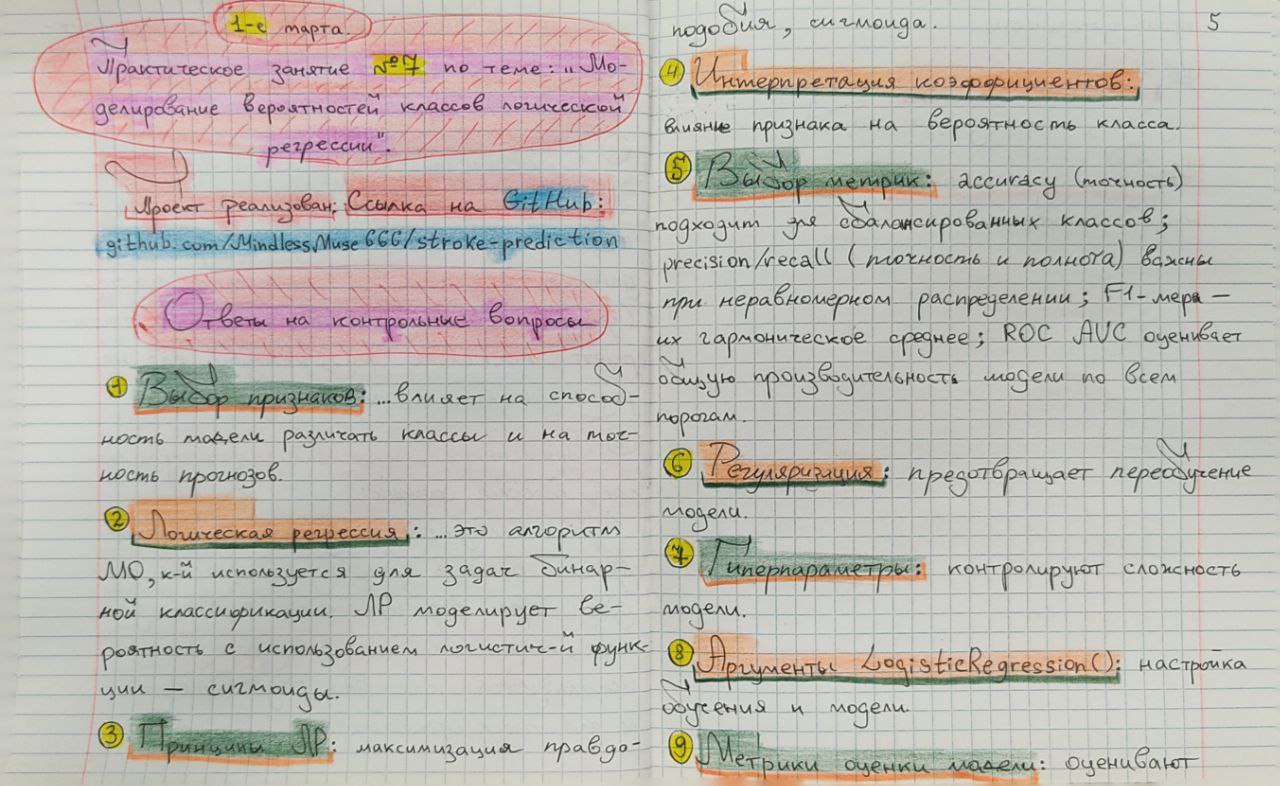 1-е марта.
Практическое занятие №7 по теме: „Мо-
делирование вероятностей классов логической
регрессии".
Проект реализован; Ссылка на GitHub:
github.com/MindlessMuse666/stroke-prediction
Ответы на контрольные вопросы
1 Выбор признаков: ...влияет на способ-
ность модели различать классы и на точ-
ность прогнозов.
2 Логическая регрессия: ...это алгоритм
МО, к-й используется для задач бинар-
ной классификации. ЛР моделирует ве-
роятность с использованием логистич-й функ-
ции — сигмоиды.
3 Принципы ЛР: максимизация правдо-
5
подобия, сигмоида.
4 Интерпретация коэффициентов:
влияние признака на вероятность класса.
5 Выбор метрик: accuracy (точность)
подходит для сбалансированных классов;
precision/recall (точность и полнота) важны
при неравномерном распределении; F1-мера —
их гармоническое среднее; ROC AUC оценивает
общую производительность модели по всем
порогам.
6 Регуляризация: предотвращает переобучение
модели.
7 Гиперпараметры: контролируют сложность
модели.
8 Аргументы LogisticRegression(): настройка
обучения и модели.
9 Метрики оценки модели: оценивают